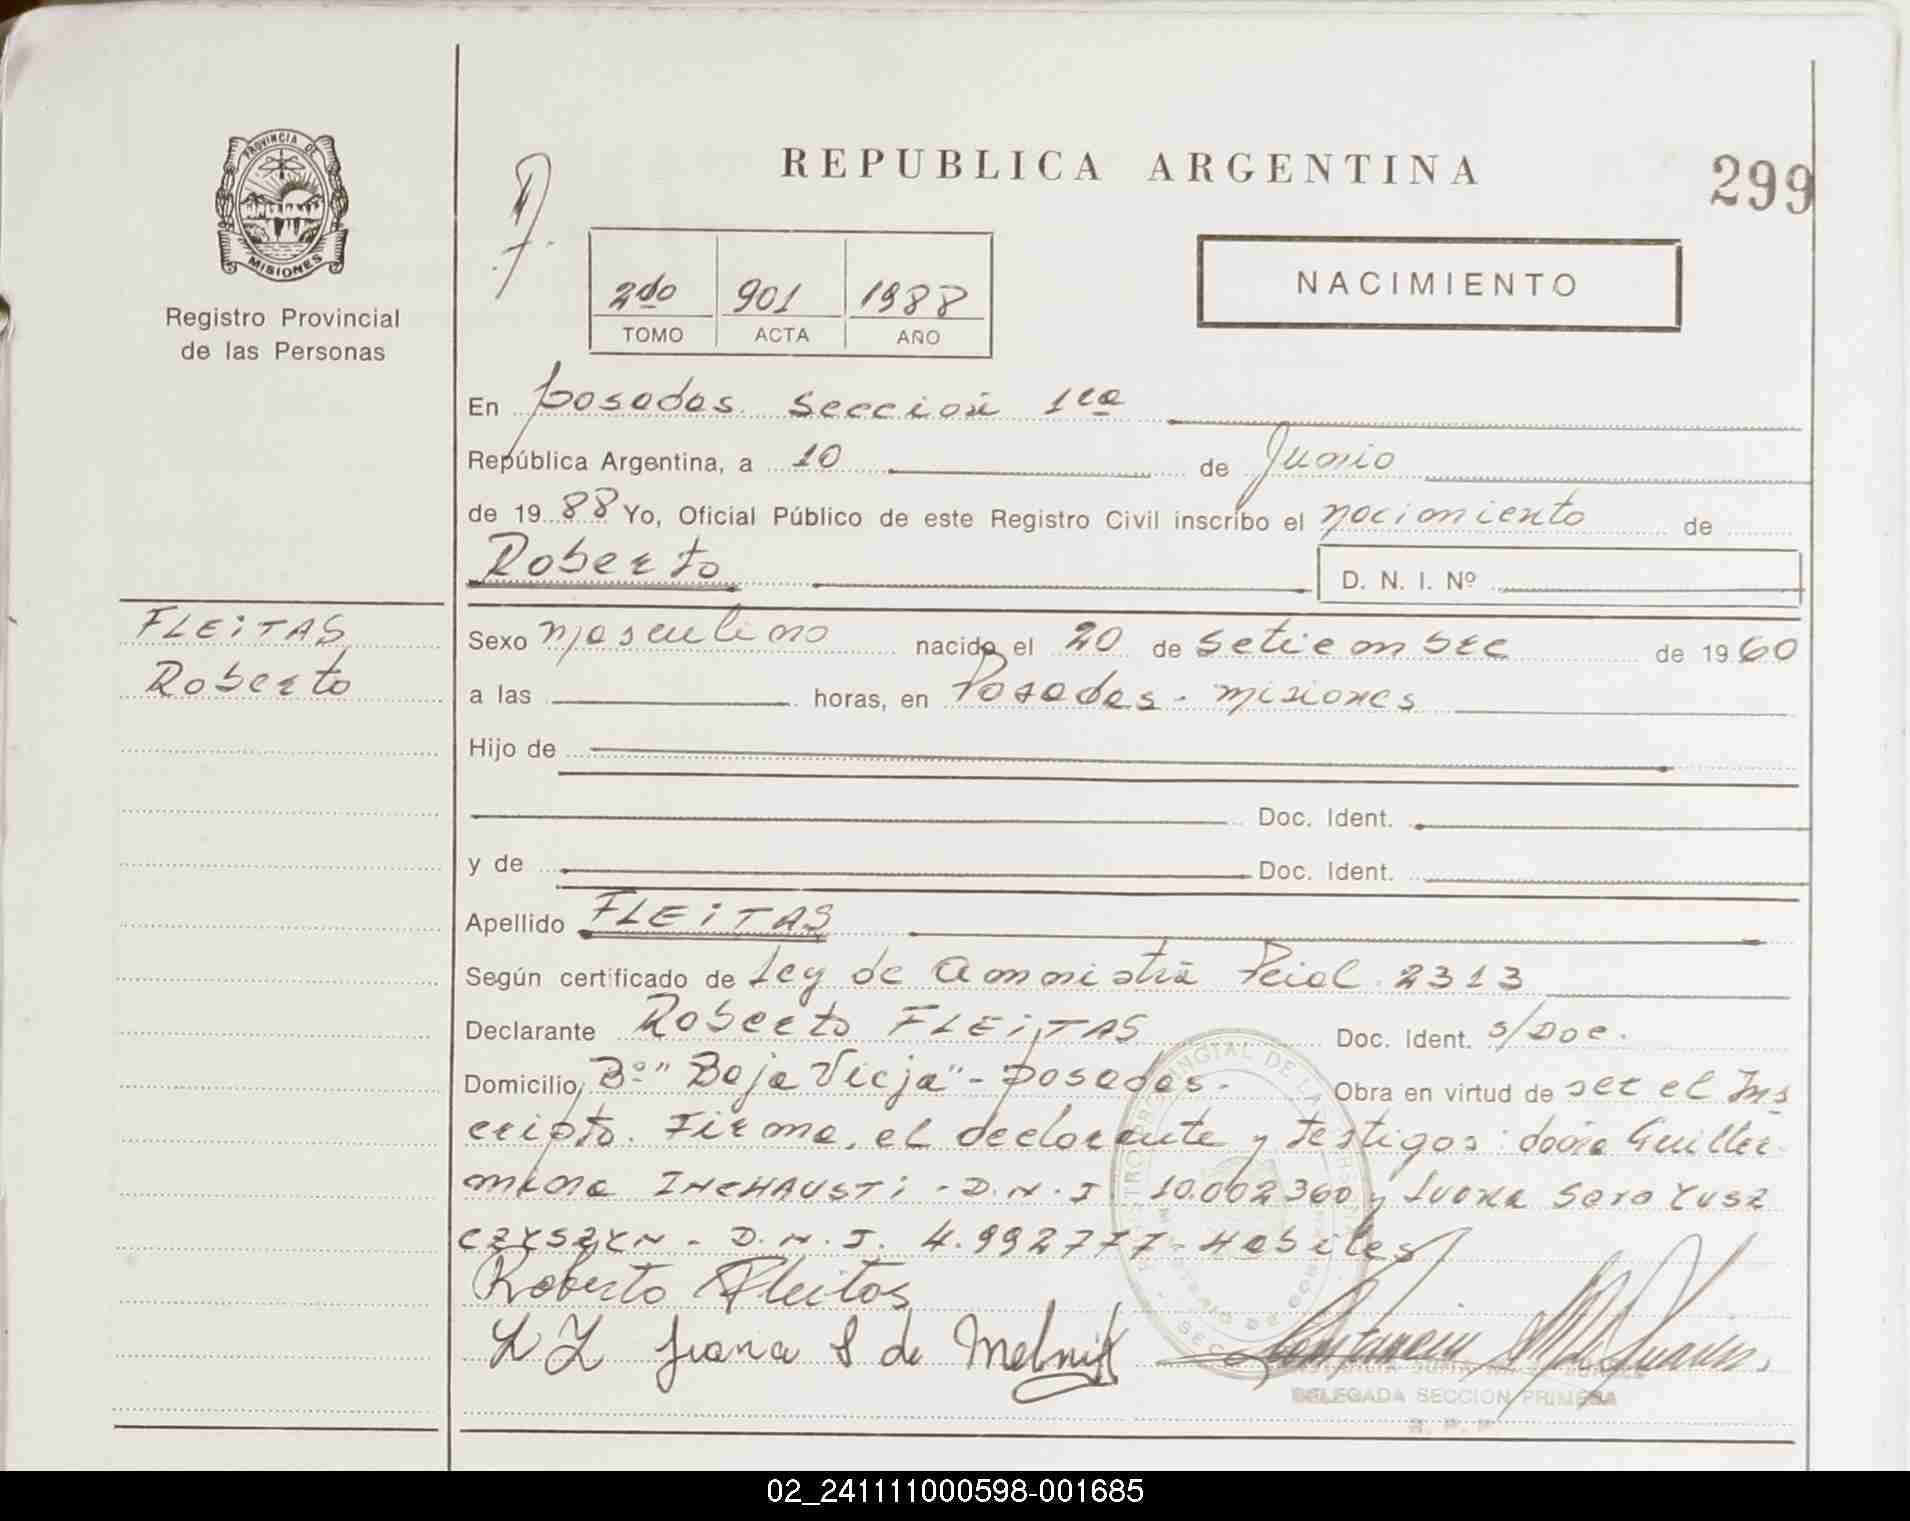 REPUBLICA ARGENTINA
299
PROVINCIA DE
MISIONES
Registro Provincial
de las Personas
2do 901 1988
TOMO ACTA AÑO
NACIMIENTO
En Posadas Sección 1ra
República Argentina, a 10 de Junio
de 1988 Yo, Oficial Público de este Registro Civil inscribo el nacimiento de
Roberto D. N. I. Nº
FLEiTAS
Roberto
Sexo masculino nacido el 20 de setiembre de 1960
a las horas, en Posadas - misiones
Hijo de
Doc. Ident.
y de Doc. Ident.
Apellido FLEiTAS
Según certificado de Ley de Amnistia Pcial. 2313
Declarante Roberto FLEiTAS Doc. Ident. s/Doc.
Domicilio Bº "Baja Vieja" - Posadas - Obra en virtud de ser el Ins
cripto. Firma, el declarante y testigos: doña Guiller
mina INCHAUSTi - D.N.I. 10.002360 y Juana Sara YUSZ
CZYSZYN - D.N.I. 4.992777 - Habiles
Roberto Fleitas
Juana S de Melnik
DELEGADA SECCION PRIMERA
R. P. P.
02_241111000598-001685